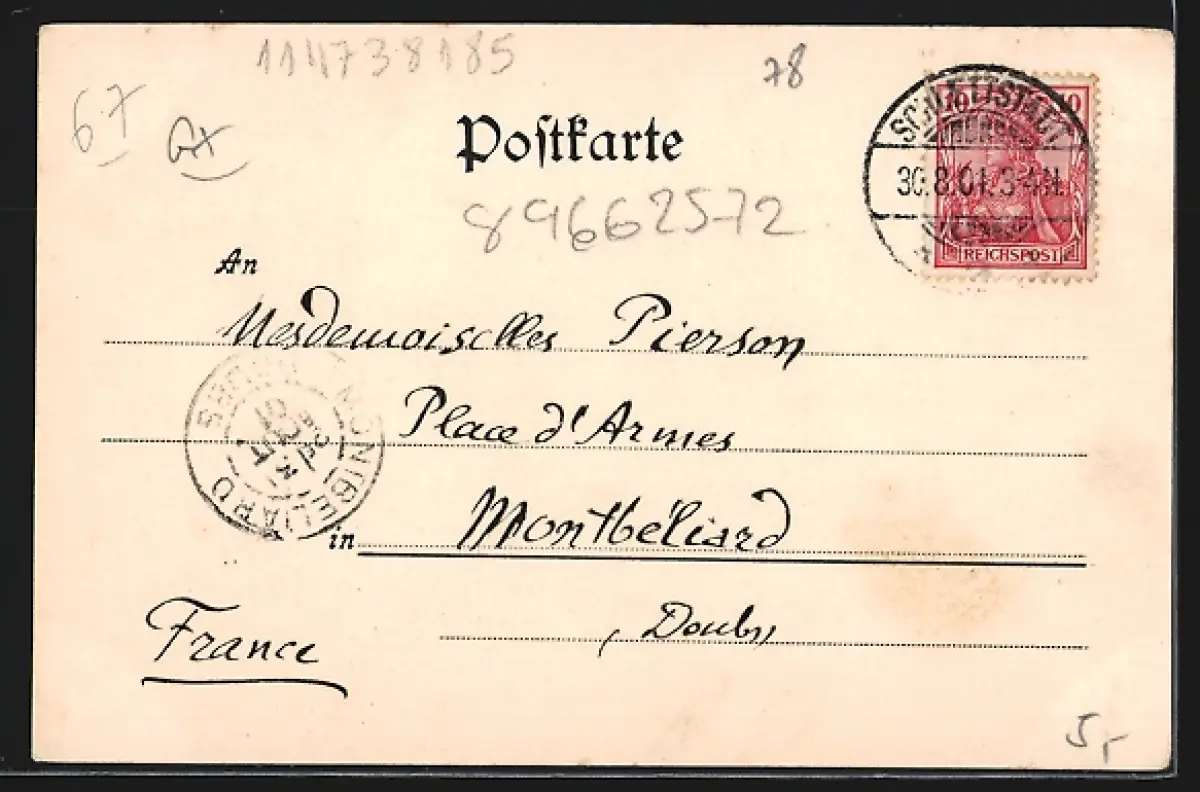 114738185
78
67
Postkarte
SCHLETTSTADT
30.8.01. 3-4 N.
10 10
REICHSPOST
89662572
An
Mesdemoiselles Pierson
Place d'Armes
MONTBELIARD
DOUBS
in Montbéliard
(Doubs)
France
5,-